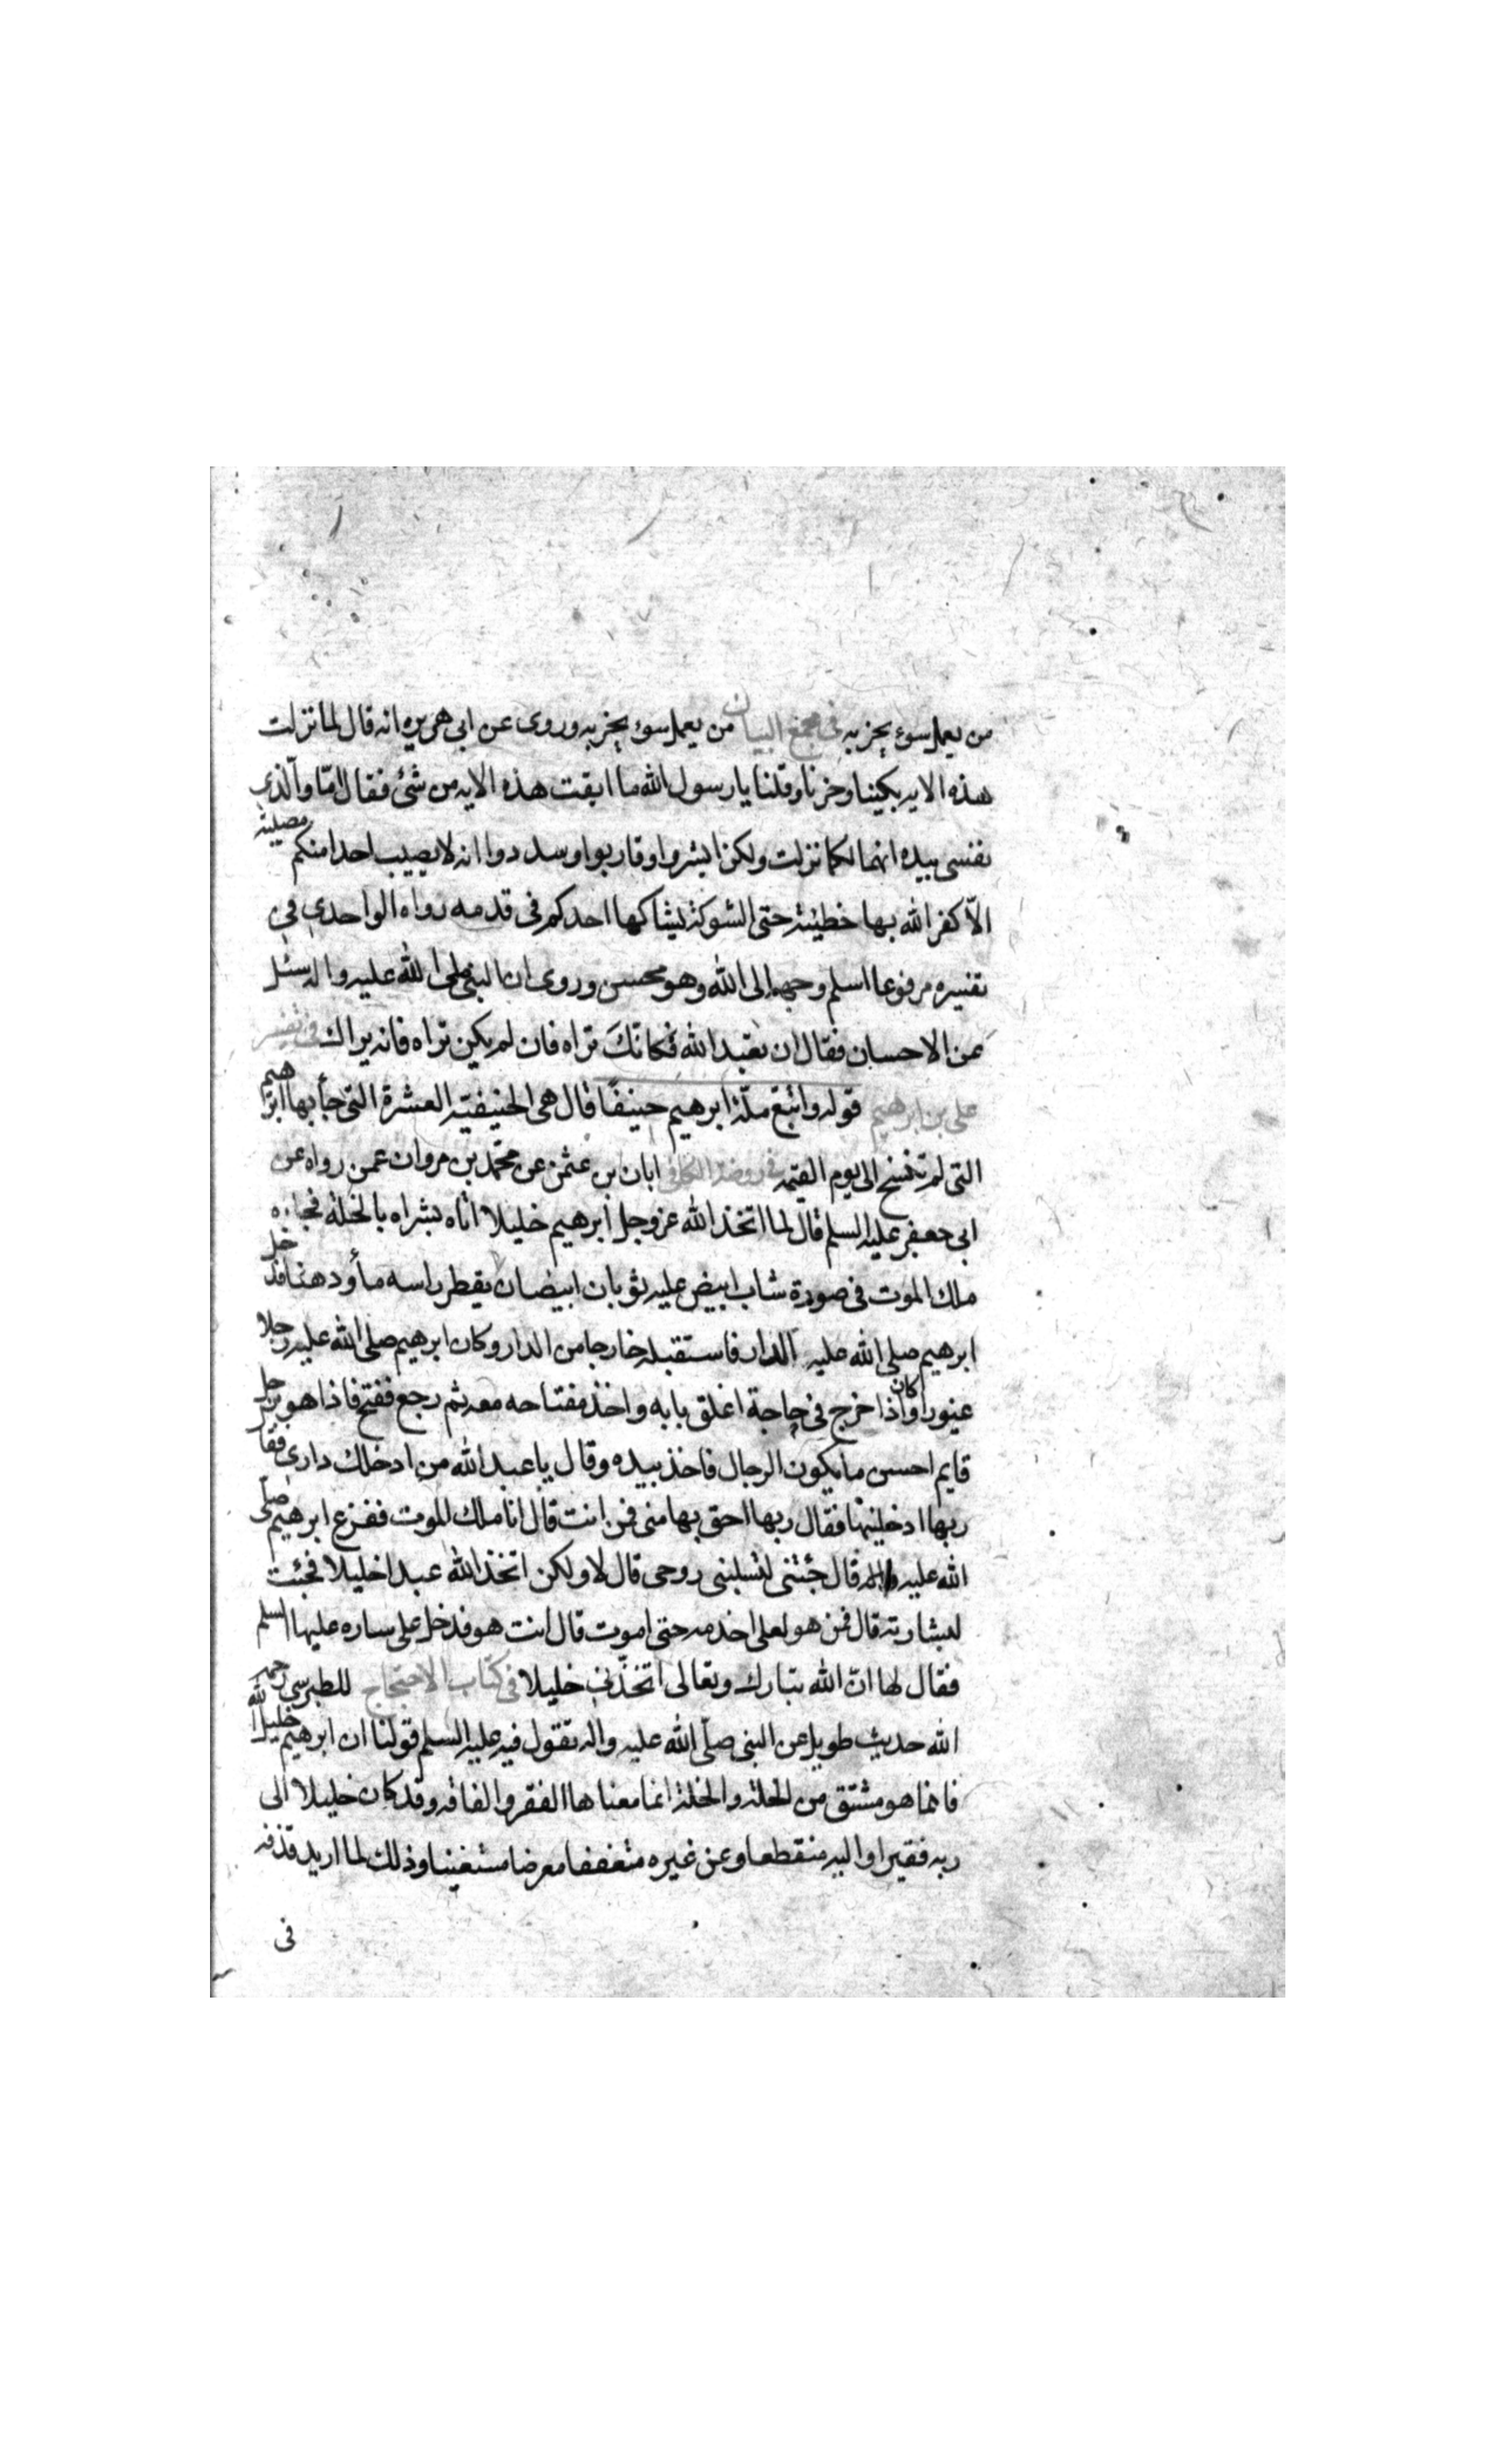 من يعمل سوء يجز به في مجمع البيان من يعمل سوء يجز به وروى عن ابى هريره انه قال لما نزلت
هذه الايه بكينا وحزنا وقلنا يا رسول الله ما ابقت هذه الايه من شئ فقال امّا والّذي
نفسى بيده انها لكما نزلت ولكن ابشروا وقاربوا وسددوا انه لا يصيب احدا منكم مصيبة
الّا كفر الله بها خطيئته حتى الشوكة يشاكها احدكم فى قدمه رواه الواحدي في
تفسيره مرفوعا اسلم وجهه الى الله وهو محسن وروى ان النبى صلى الله عليه واله سئل
عن الاحسان فقال ان تعبد الله فكانّكَ تراه فان لم يكن تراه فانه يراك فى تفسير
على بن ابرهيم قوله واتبع ملة ابرهيم حنيفًا قال هى الحنيفيته العشرة التى جأ بها ابرهيم
التى لم تنسخ الى يوم القيمه فى روضة الكافى ابان بن عثمن عن محمّد بن مروان عمن رواه عن
ابى جعفر عليه السلم قال لما اتخذ الله عزوجل ابرهيم خليلا اتاه بشراه بالخلة فجاءه
ملك الموت فى صورة شاب ابيض عليه ثوبان ابيضان يقطر راسه مأ ودهنا فدخل
ابرهيم صلى الله عليه الدار فاستقبله خارجا من الدار وكان ابرهيم صلى الله عليه رجلا
غيورا وكان اذا خرج فى حاجة اغلق بابه واخذ مفتاحه معه ثم رجع ففتح فاذا هو برجل
قايم احسن ما يكون الرجال فاخذ بيده وقال يا عبد الله من ادخلك دارى فقا
ربها ادخلينها فقال ربها احق بها منى فمن انت قال انا ملك الموت ففزع ابرهيم صلّى
الله عليه واله قال جئتنى لتسلبنى روحى قال لا ولكن اتخذ الله عبدا خليلا فجئت
لبشارته قال فمن هو لعلى اخدمه حتى اموت قال انت هو فدخل على ساره عليها السلم
فقال لها انّ الله تبارك وتعالى اتخذنى خليلا فى كتاب الاحتجاج للطبرسي رحمه الله
الله حديث طويل عن النبى صلّى الله عليه واله تقول فيه عليه السلم قولنا ان ابرهيم خليل
فانما هو مشتق من الخلة والخلة انما معناها الفقر والفاقه وقد كان خليلا الى
ربه فقيرا واليه منقطعا وعن غيره متعففا معرضا مستغنيا وذلك لما اريد قذفه
فى